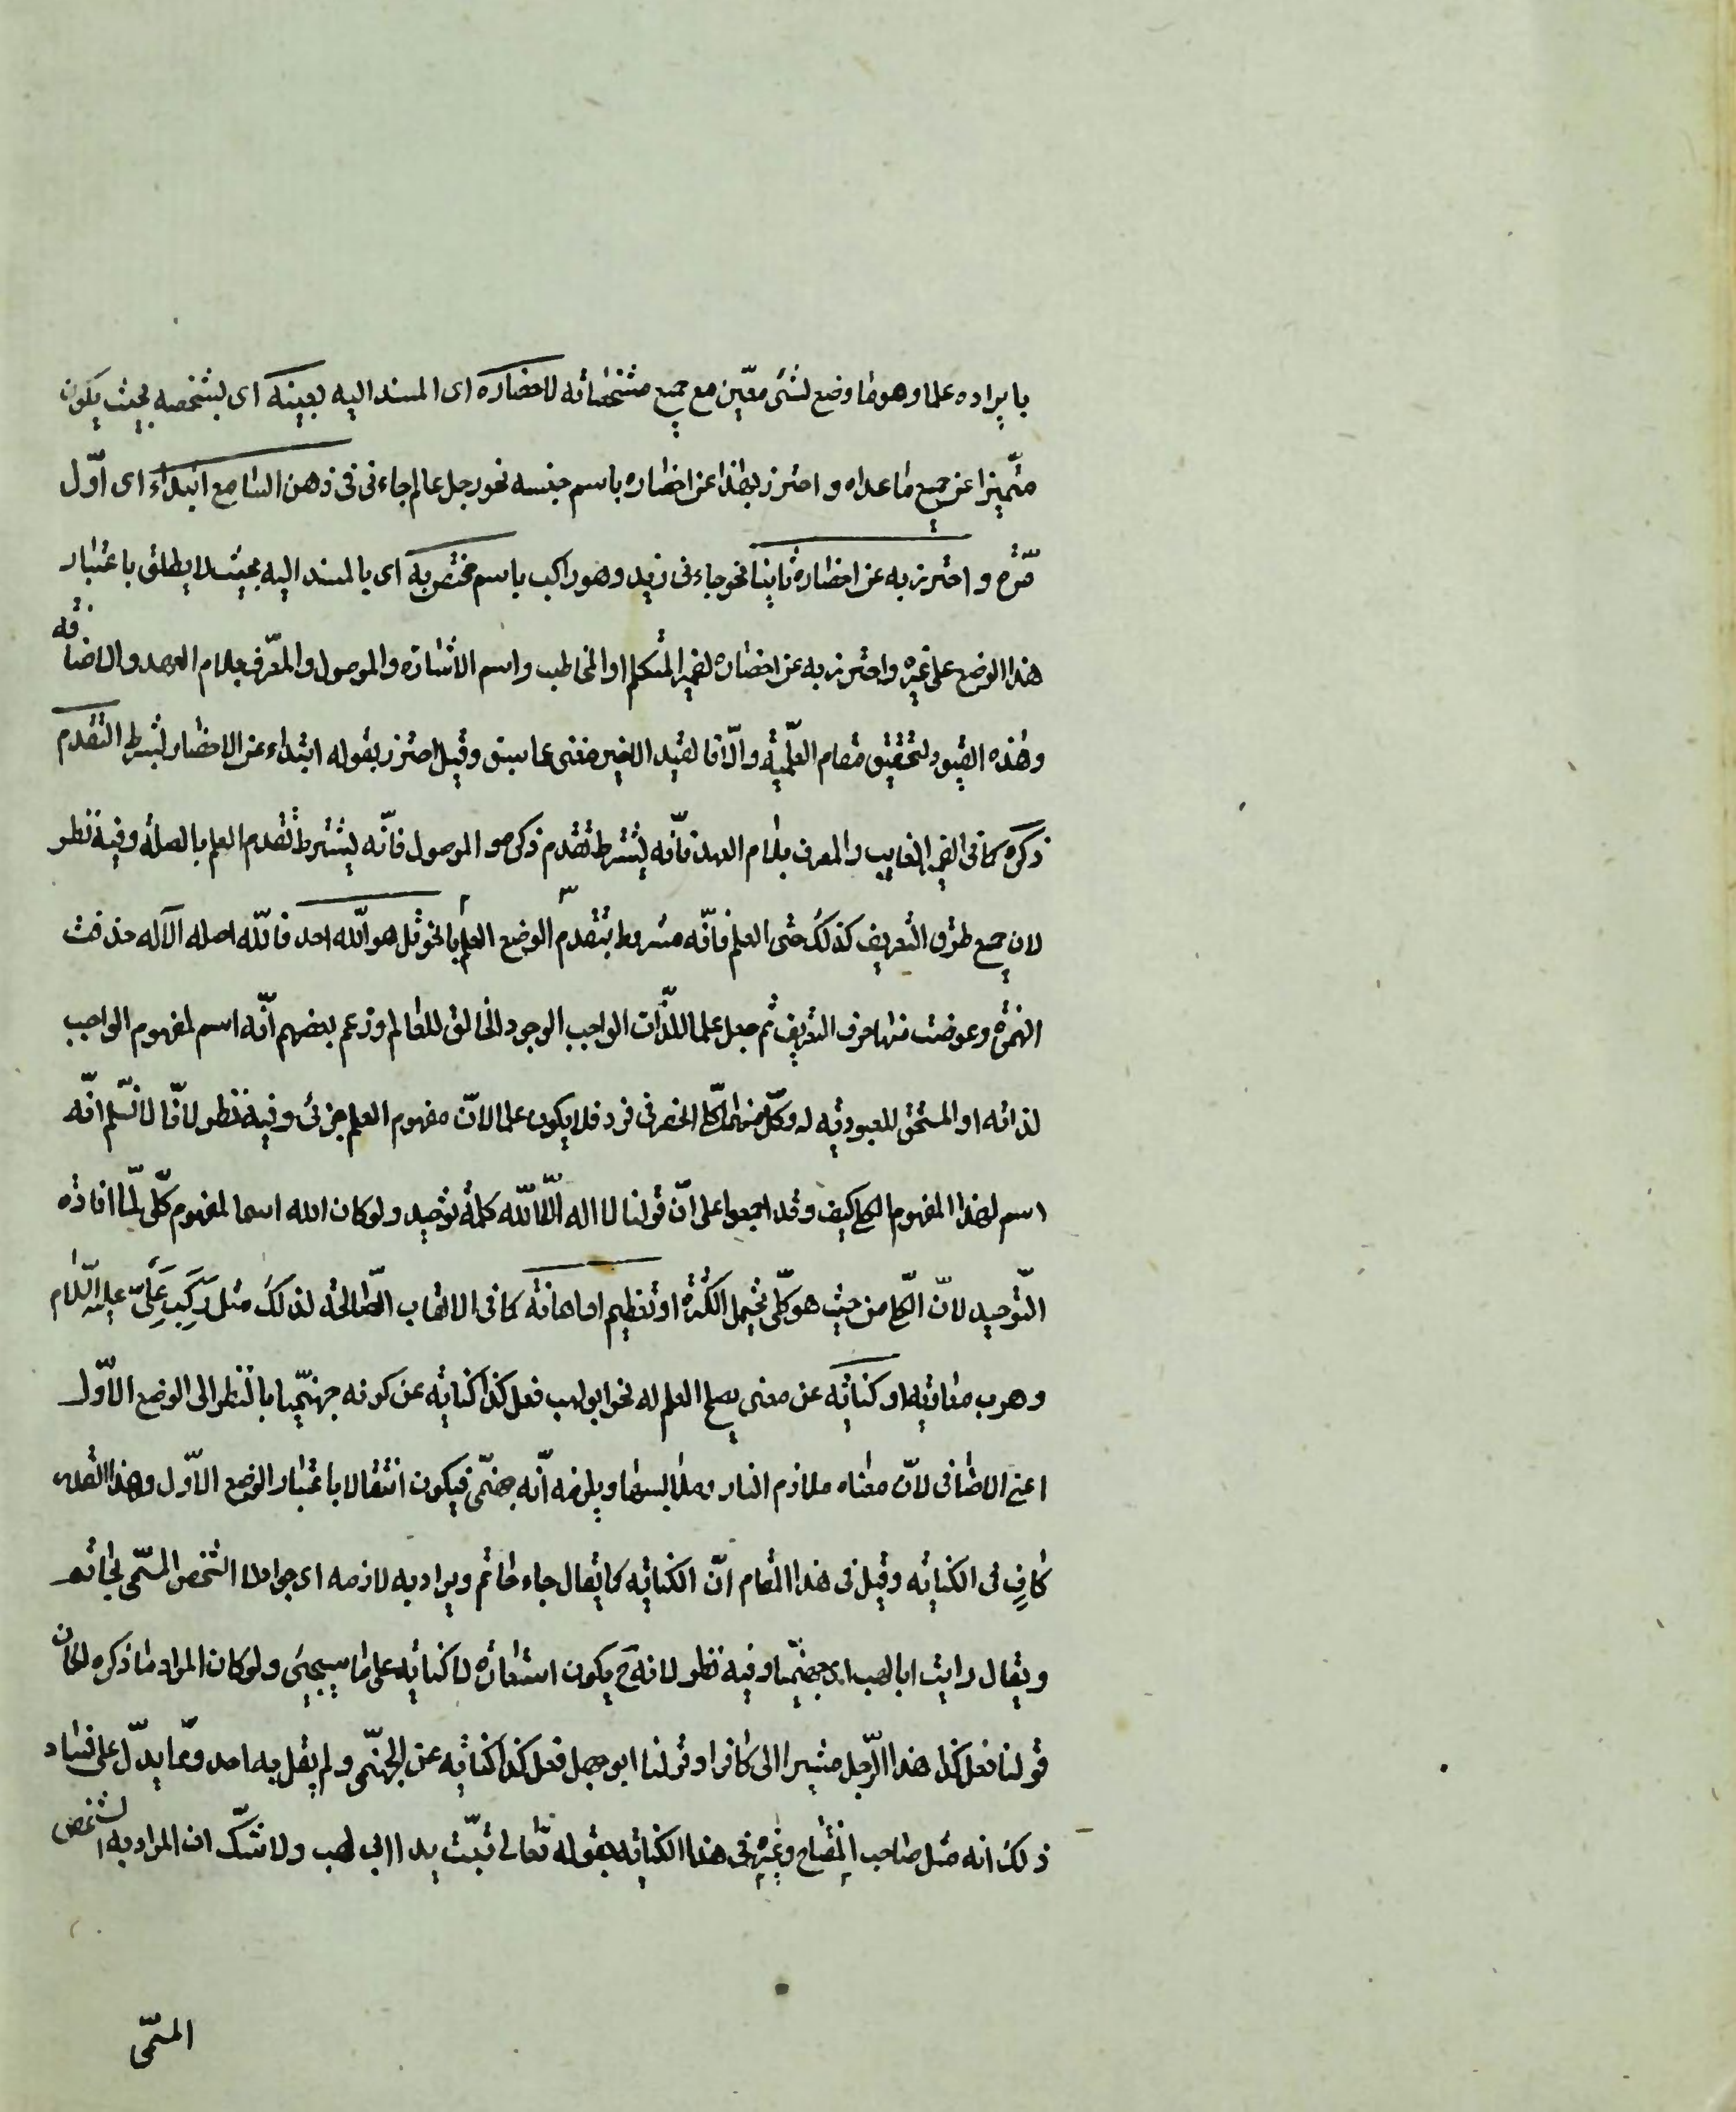 بايراده علما وهو ما وضع لشئ معيّن مع جميع مشخصاته لاحضاره اى المسند اليه بعينه اى بشخصه بحيث يكون
متميّزا عن جميع ما عداه و احترز بهذا عن احضاره باسم جنسه نحو رجل عالم جاءنى فى ذهن السامع ابتداء اى اوّل
مرّة و احترز به عن احضاره ثانيا نحو جاءنى زيد وهو راكب باسم مختص به اى بالمسند اليه بحيث لا يطلق باعتبار
هذا الوضع على غيره واحترز به عن احضاره بضمير المتكلم او المخاطب واسم الاشارة والموصول والمعرّف بلام العهد والاضافة
وهذه القيود لتحقيق مقام العلّمية والّا فالقيد الاخير مغنى عما سبق وقيل احترز بقوله ابتداء عن الاحضار بشرط التقدم
ذكره كما فى الضمير الغايب والمعرف بلام العهد فانّه يشترط تقدم ذكره و الموصول فانّه يشترط تقدم العلم بالصلة وفيه نظر
لان جميع طرق التعريف كذلك حتى العلم فانّه مشروط بتقدم الوضع العلم با نحو قل هو اللّه احد فاللّه اصله الآله حذفت
الهمزة وعوضت منها حرف التعريف ثم جعل علما للذّات الواجب الوجود الخالق للعالم وزعم بعضهم انّه اسم لمفهوم الواجب
لذاته او المستحق للعبودية له وكلّ منهما كلّى انحصر فى فرد فلا يكون علما لانّ مفهوم العلم جزئى وفيه نظر لانّا لا نسّلم انّه
اسم لهذا المفهوم الكلى كيف وقد اجمعوا على انّ قولنا لا اله الّا اللّه كلمة توحيد ولو كان الله اسما لمفهوم كلّى لّما افاد
التّوحيد لانّ الكلّى من حيث هو كلّى يحتمل الكثرة او تعظيم او اهانة كما فى الالقاب الصّالحة لذلك مثل رَكِبَ عَلِىّ عليه السّلام
وهرب معاوية او كناية عن معنى يصلح العلم له نحو ابو لهب فعل كذا كناية عن كونه جهنّميا بالنّظر الى الوضع الاوّل
اعنى الاضافى لانّ معناه ملازم النار وملابسها ويلزمه انّه جهنّمى فيكون انتقالا باعتبار الوضع الاوّل وهذا القدر
كافٍ فى الكناية وقيل فى هذا المقام انّ الكناية كما يقال جاء حاتم ويراد به لازمه اى جواد لا الشخص المسّمى بحاتم
ويقال رايت ابا لهب اى جهنّميا وفيه نظر لانه ح يكون استعارة لا كناية على ما سيجيئ ولو كان المراد ما ذكره لكان
قولنا فعل كذا هذا الرّجل مشيرا الى كافر او قولنا ابو جهل فعل كذا كناية عن الجهنّمى ولم يقل به احد وممّا يدلّ على فساد
ذلك انه مثل صاحب المفتاح وغيره فى هذا الكناية بقوله تعالى تبّت يدا ابى لهب ولا شكّ ان المراد به الشخص
المسمّى